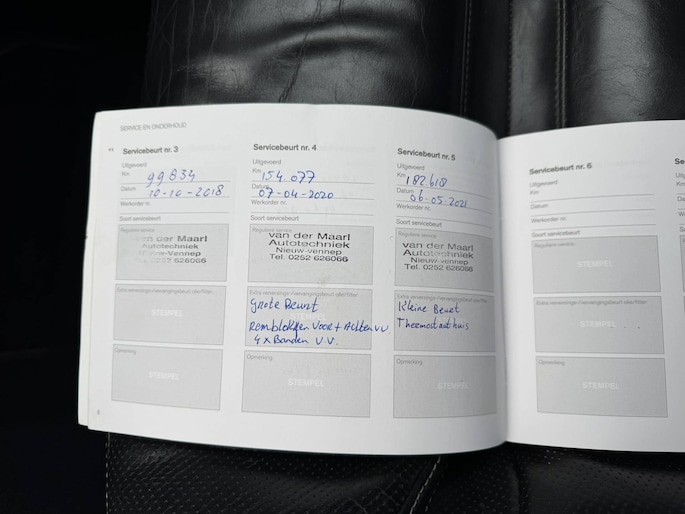 SERVICE EN ONDERHOUD
Servicebeurt nr. 3
Uitgevoerd
Km 99834
Datum 10-10-2018
Werkorder nr.
Soort servicebeurt
Reguliere service
van der Maarl
Autotechniek
Nieuw-Vennep
Tel. 0252 626066
Extra verversings-/vervangingsbeurt olie/filter
STEMPEL
Opmerking
STEMPEL
Servicebeurt nr. 4
Uitgevoerd
Km 154.077
Datum 07-04-2020
Werkorder nr.
Soort servicebeurt
Reguliere service
van der Maarl
Autotechniek
Nieuw-vennep
Tel. 0252 626066
Extra verversings-/vervangingsbeurt olie/filter
Grote Beurt
Remblokken Voor + Achter VV.
4 x Banden V.V.
Opmerking
STEMPEL
Servicebeurt nr. 5
Uitgevoerd
Km 182.618
Datum 06-05-2021
Werkorder nr.
Soort servicebeurt
Reguliere service
van der Maarl
Autotechniek
Nieuw-vennep
Tel. 0252 626066
Extra verversings-/vervangingsbeurt olie/filter
Kleine Beurt
Thermostaathuis
Opmerking
STEMPEL
Servicebeurt nr. 6
Uitgevoerd
Km
Datum
Werkorder nr.
Soort servicebeurt
Reguliere service
STEMPEL
Extra verversings-/vervangingsbeurt olie/filter
STEMPEL
Opmerking
STEMPEL